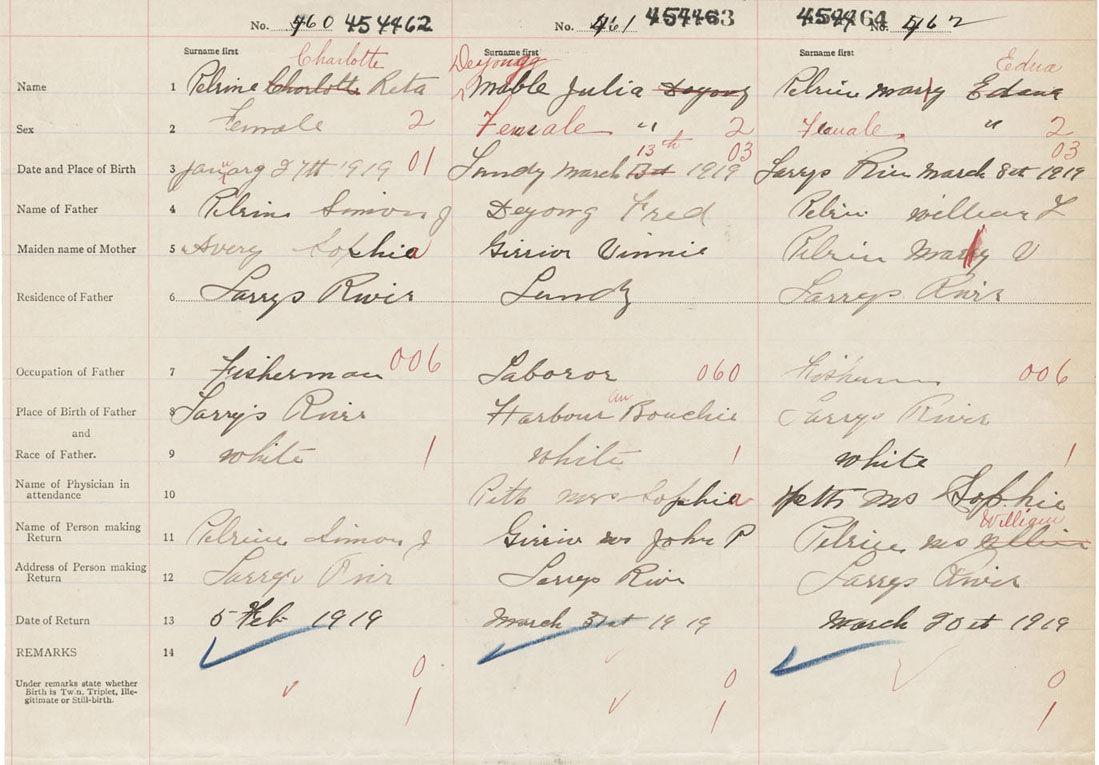 No. 460 454462 No. 461 454463 454464 No. 462
Surname first Surname first Surname first
Charlotte Deyongg Edna
Name 1 Pelrine Charlotte Reta Mable Julia Deyong Pelrine Marry Edana
Sex 2 Female 2 Female " 2 Female " 2
13th 03 03
Date and Place of Birth 3 January 27th 1919 01 Lundy March 13st 1919 Larrys River March 8th 1919
Name of Father 4 Pelrine Simon J Deyong Fred Pelrine William L
Maiden name of Mother 5 Avery Sophia Girrior Vinnie Pelrine Marry V
Residence of Father 6 Larrys River Lundy Larrys River
Occupation of Father 7 Fisherman 006 Laboror 060 Fisherman 006
au
Place of Birth of Father 8 Larrys River Harbour Bouchie Larrys River
and
Race of Father. 9 white 1 white 1 white 1
Name of Physician in
attendance 10 Mrs Sophia Ms Sophie
William
Name of Person making
Return 11 Pelrine Simon J Girrior ms John P Pelrine ms
Address of Person making
Return 12 Larrys River Larrys River Larrys River
Date of Return 13 5 Feb 1919 March 31st 1919 March 20th 1919
REMARKS 14
0 0 0
Under remarks state whether
Birth is Twin, Triplet, Ille-
gitimate or Still-birth.
1 1 1